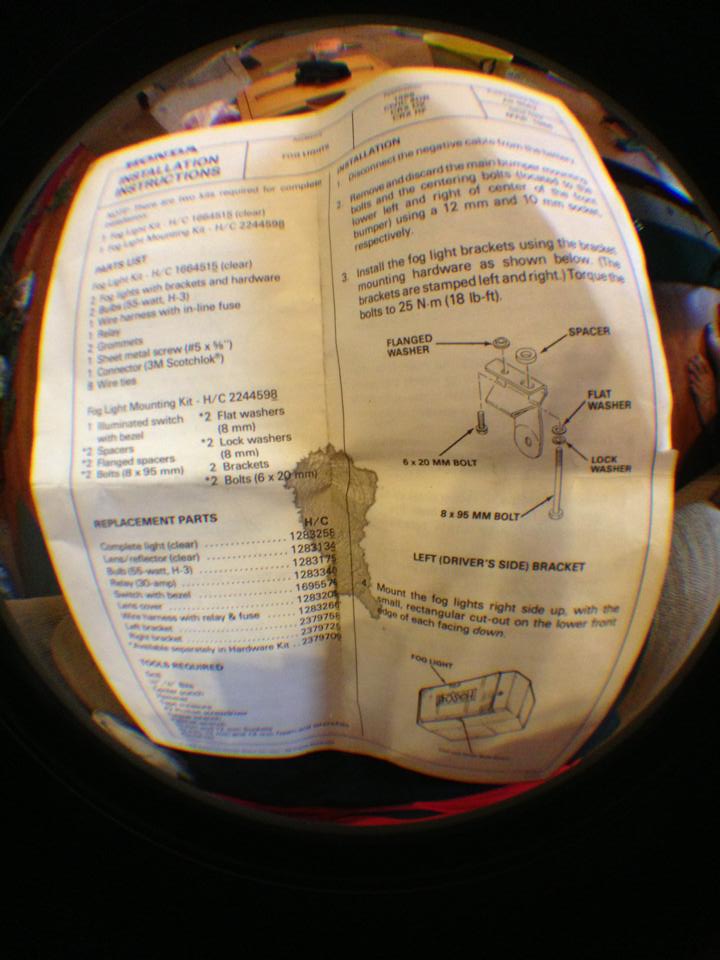 HONDA
INSTALLATION
INSTRUCTIONS
FOG LIGHTS
1988
CRX HF
NOTE: There are two kits required for complete
installation:
1 Fog Light Kit - H/C 1664515 (clear)
1 Fog Light Mounting Kit - H/C 2244598
PARTS LIST
Fog Light Kit - H/C 1664515 (clear)
2 Fog lights with brackets and hardware
2 Bulbs (55-watt, H-3)
1 Wire harness with in-line fuse
1 Relay
2 Grommets
1 Sheet metal screw (#5 x ⅝")
1 Connector (3M Scotchlok®)
8 Wire ties
Fog Light Mounting Kit - H/C 2244598
1 Illuminated switch
with bezel
*2 Spacers
*2 Flanged spacers
*2 Bolts (8 x 95 mm)
*2 Flat washers
(8 mm)
*2 Lock washers
(8 mm)
2 Brackets
*2 Bolts (6 x 20 mm)
REPLACEMENT PARTS
H/C
Complete light (clear) .................. 1283258
Lens/reflector (clear) .................. 1283134
Bulb (55-watt, H-3) .................. 1283175
Relay (30-amp) .................. 128334
Switch with bezel .................. 169557
Lens cover .................. 128320
Wire harness with relay & fuse .......... 128326
Left bracket .................. 2379758
Right bracket .................. 237972
*Available separately in Hardware Kit .. 2379709
TOOLS REQUIRED
Drill
Center punch
Hammer
Tape measure
INSTALLATION
1. Disconnect the negative cable from the battery.
2. Remove and discard the main bumper mounting
bolts and the centering bolts (located to the
lower left and right of center of the front
bumper) using a 12 mm and 10 mm socket,
respectively.
3. Install the fog light brackets using the bracket
mounting hardware as shown below. (The
brackets are stamped left and right.) Torque the
bolts to 25 N·m (18 lb-ft).
FLANGED
WASHER
SPACER
FLAT
WASHER
LOCK
WASHER
6 x 20 MM BOLT
8 x 95 MM BOLT
LEFT (DRIVER'S SIDE) BRACKET
4. Mount the fog lights right side up, with the
small, rectangular cut-out on the lower front
edge of each facing down.
FOG LIGHT